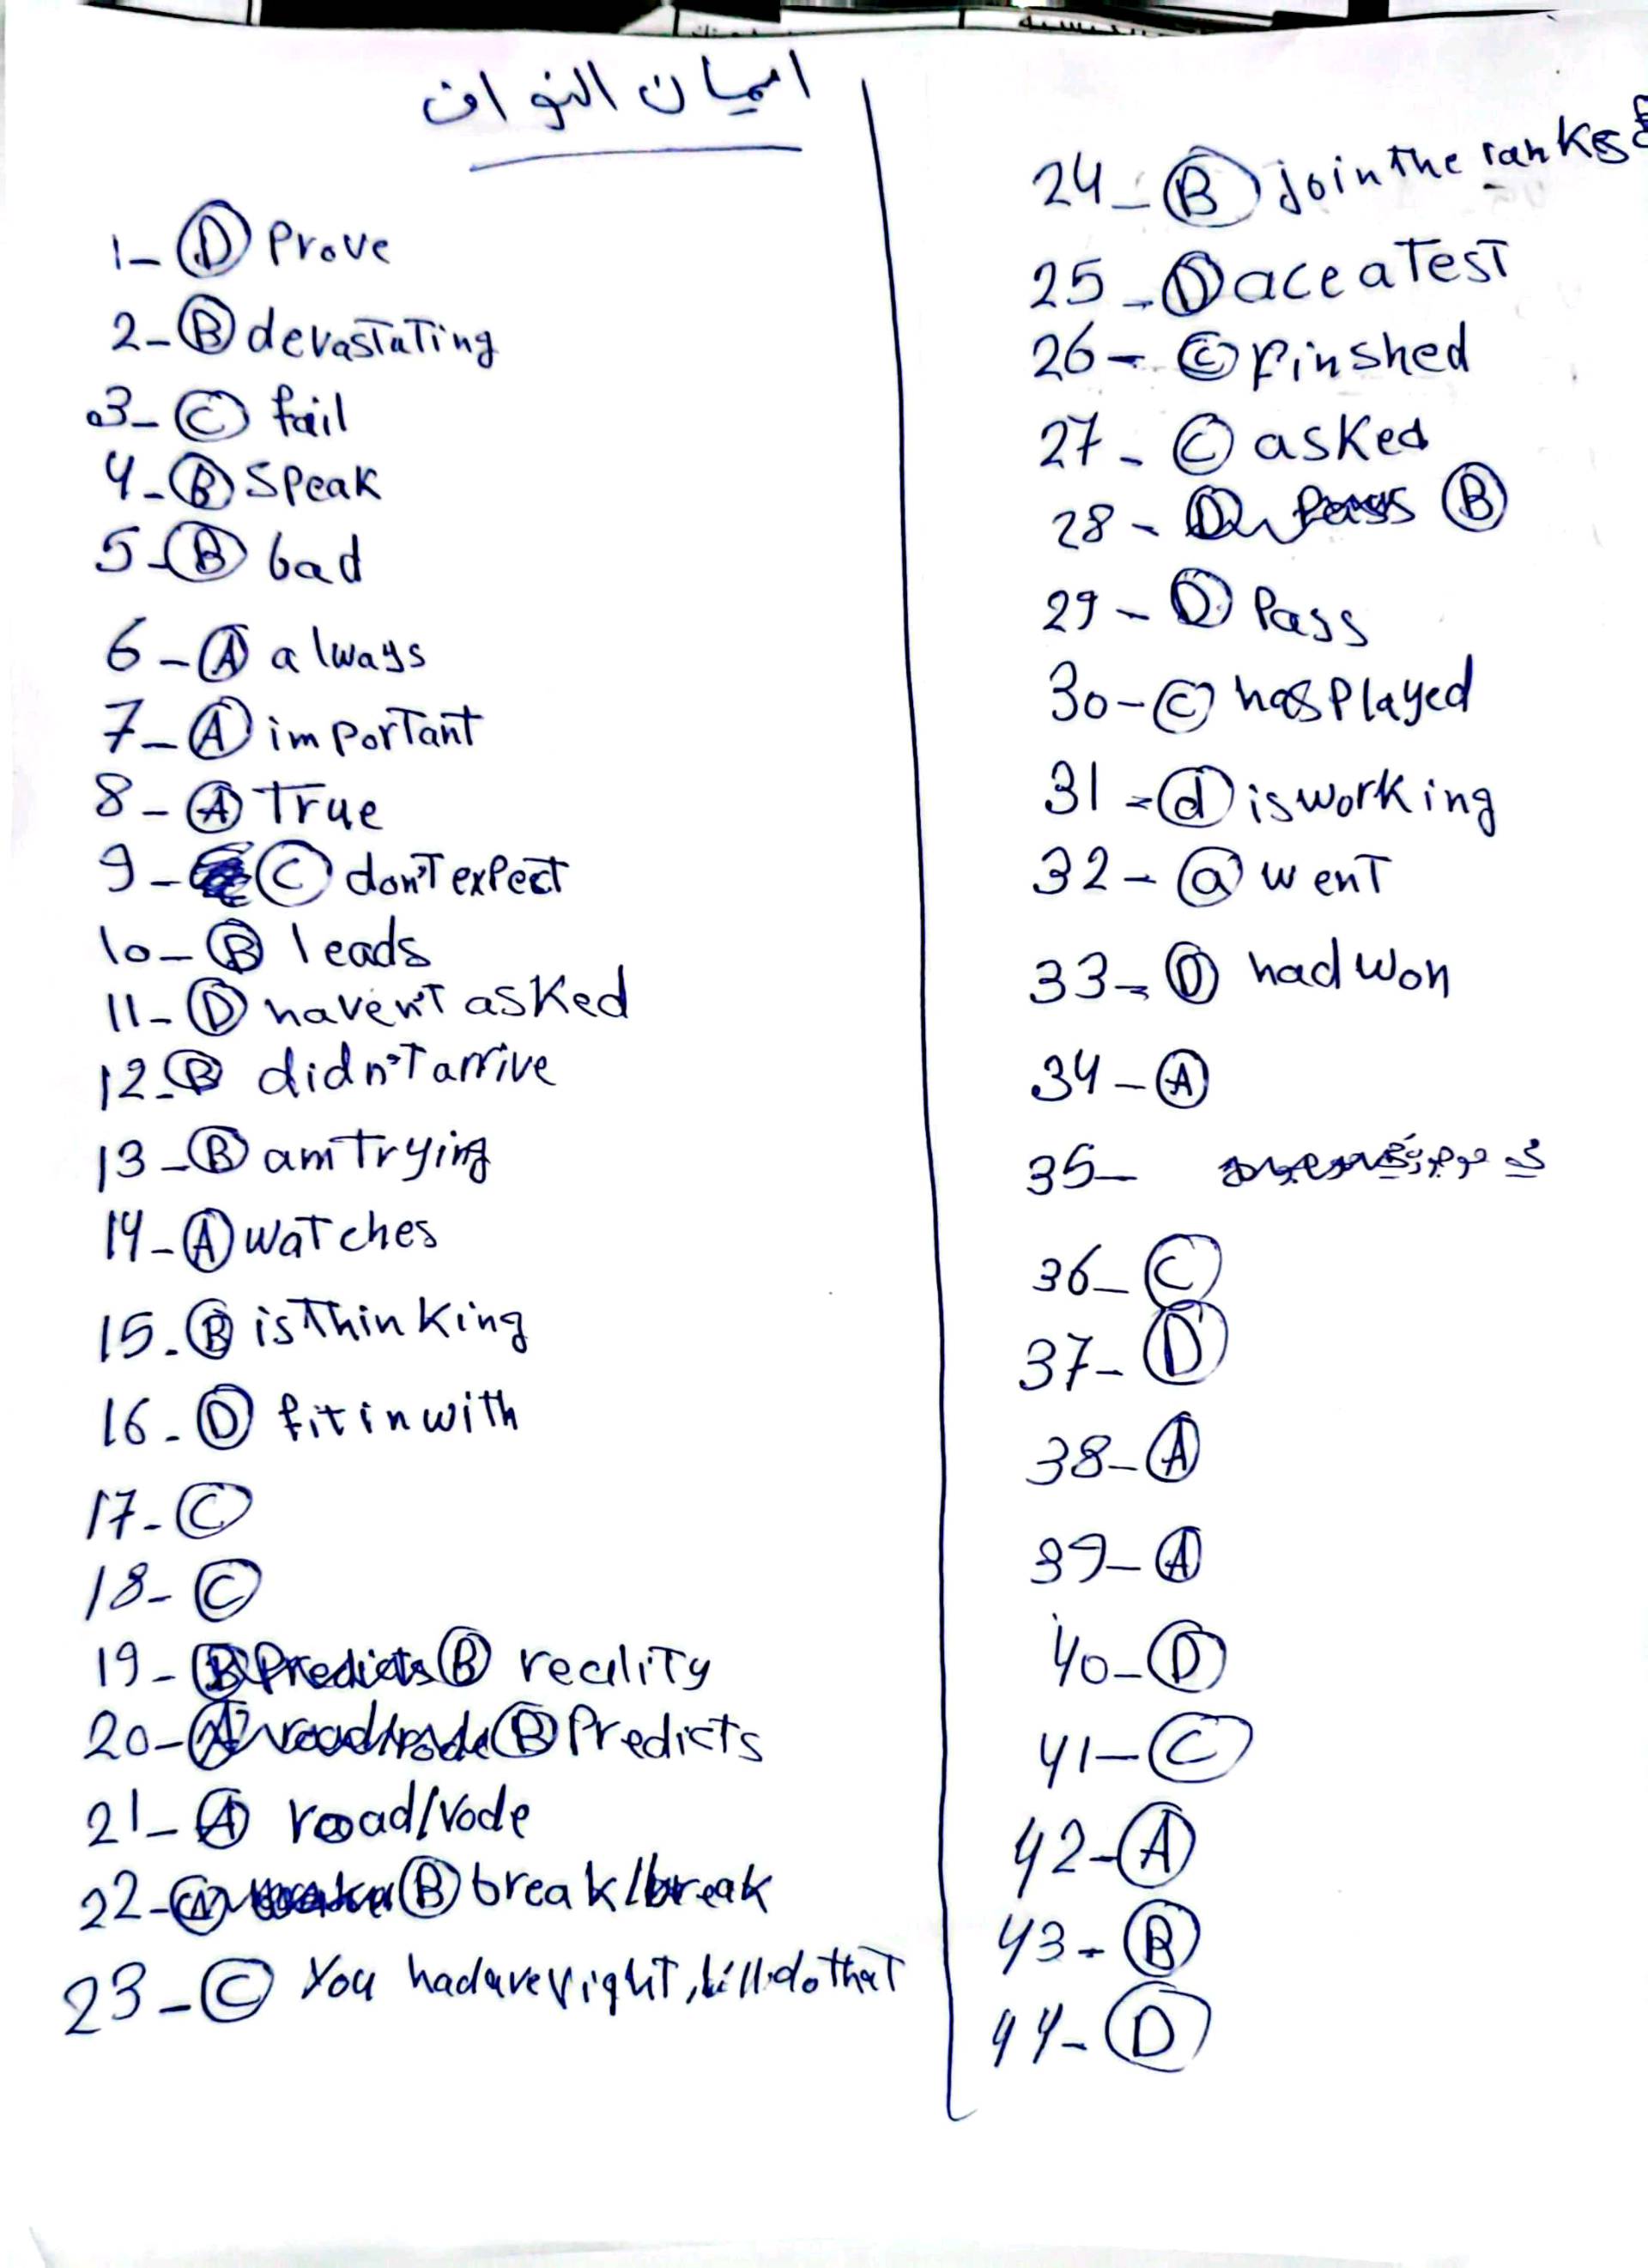 ايمان النواف
1- D Prove
2- B devastating
3- C fail
4- B Speak
5- B bad
6- A always
7- A important
8- A True
9- C don't expect
10- B leads
11- D haven't asked
12- B didn't arrive
13- B am Trying
14- A watches
15- B is Thinking
16- D fit in with
17- C
18- C
19- B reality
20- B Predicts
21- A road/rode
22- B break/break
23- C You right, do that
24- B join the ranks of
25- D ace a Test
26- C finshed
27- C asked
28- B
29- D Pass
30- C has Played
31- d is working
32- a went
33- D had won
34- A
35-
36- C
37- D
38- A
39- A
40- D
41- C
42- A
43- B
44- D